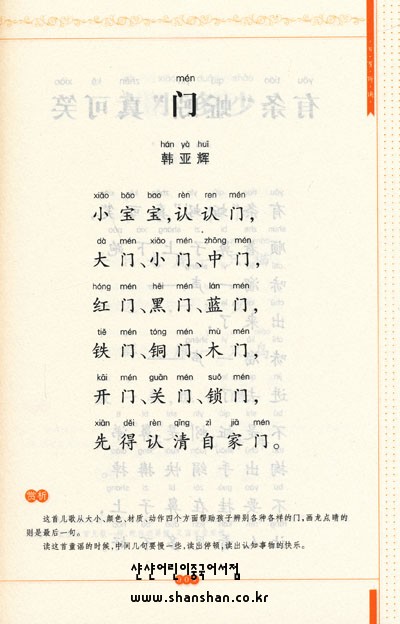 mén
门
hán yà huī
韩亚辉
xiǎo bǎo bao rèn ren mén
小宝宝,认认门,
dà mén xiǎo mén zhōng mén
大门、小门、中门,
hóng mén hēi mén lán mén
红门、黑门、蓝门,
tiě mén tóng mén mù mén
铁门、铜门、木门,
kāi mén guān mén suǒ mén
开门、关门、锁门,
xiān děi rèn qīng zì jiā mén
先得认清自家门。
赏析
这首儿歌从大小、颜色、材质、动作四个方面帮助孩子辨别各种各样的门,画龙点睛的
则是最后一句。
读这首童谣的时候,中间几句要慢一些,读出停顿,读出认知事物的快乐。
샨샨어린이중국어서점
www.shanshan.co.kr